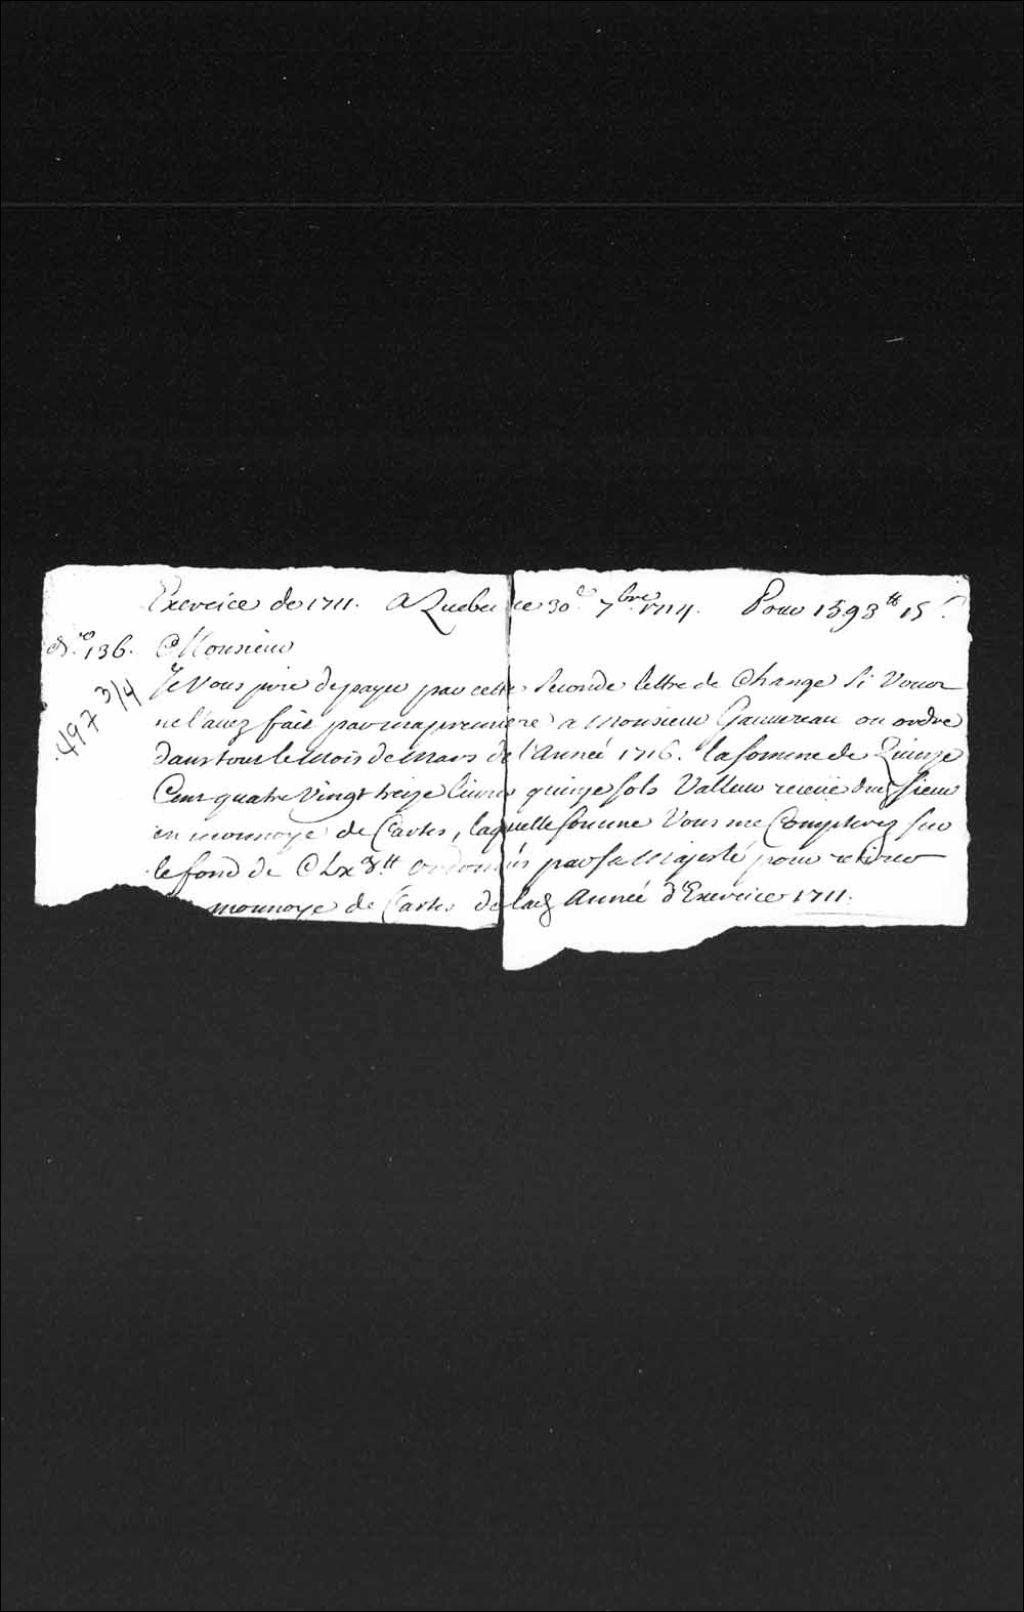 Exercice de 1711. A Quebec ce 30.e 7.bre 1714. Pour 1593tt 15s.
N.ro 136. Monsieur
497 3/4
Je Vous prie de payer par cette Seconde lettre de Change Si Vous
ne l'avez fait par ma premiere a Monsieur Gauvreau ou ordre
dans tout le Mois de Mars de l'Année 1716. la somme de Quinze
Cent quatre Vingt treize Livres quinze sols Valleur receüe dud sieur
en monnoye de Cartes, laquelle somme Vous me Compterez sur
le fond de ordonnés par sa Majesté pour retirer
monnoye de Cartes de lad Année d'Exercice 1711.